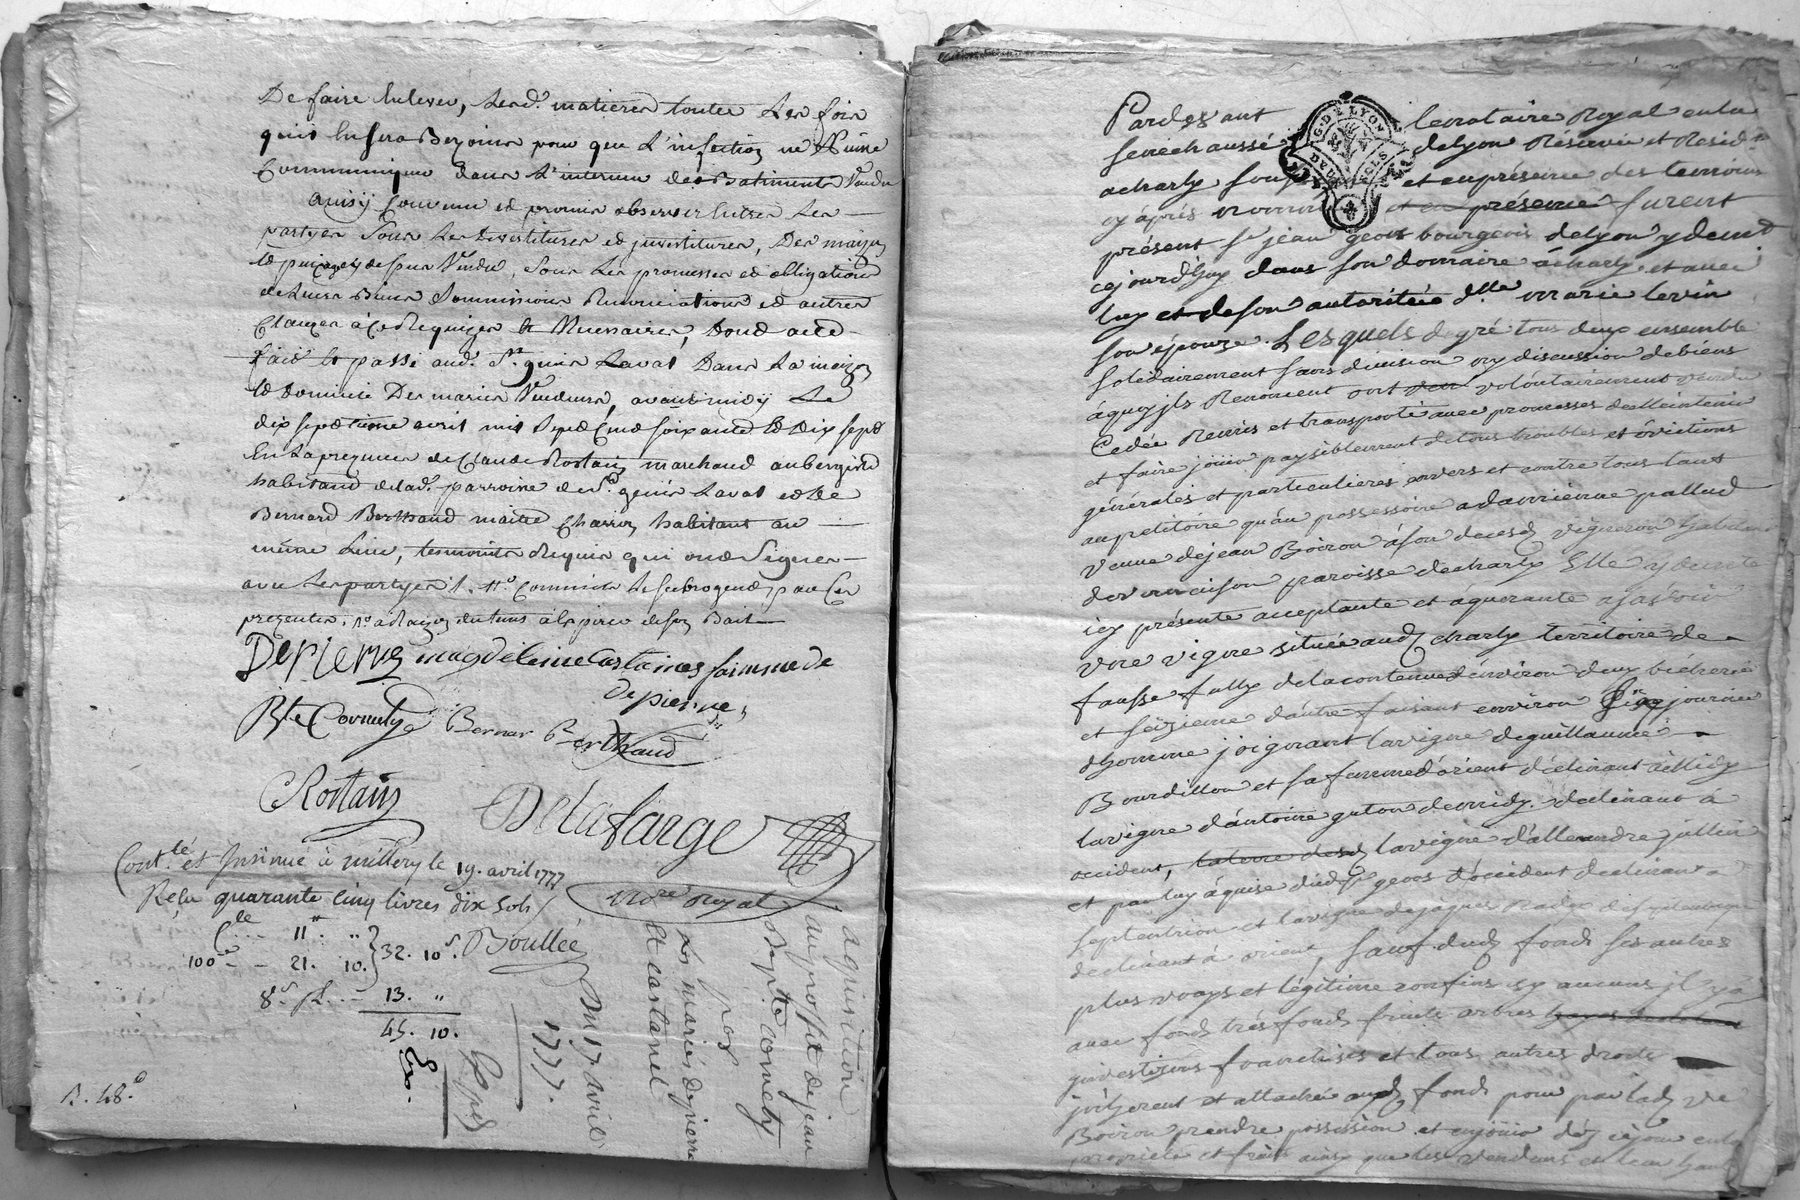 De faire Enlever, Lesd. matieres toutes Les fois
quil En sera Bezoins pour que L'infection ne Nuise
Communique dans L'interieur des Batiments Vendu
ainsy Convenu et promis observer Entre Les
partyes Sous Les devestitures et investitures, Des maizon
Sous Les promesses et obligations
de Leurs Biens Soumissions Renonciations et autres
Clauzes à ce Requizes & Necessaires, Dont acte
fait et passé aud. St. genis Laval Dans La maizon
et domicile Des mariés Vendeurs, avant midy Le
dix septieme avril mil Sept Cent soixante et dix sept
En La prezence de Claude Rostain marchand aubergiste
habitant de lad. parroisse de St. genis Laval et de
Bernard Berthaud maitre Charron habitant au
même Lieu, temoins Requis qui ont Signés
avec Les partyes
prezentes.
Depierre magdeleine Castaines famme de
depierre
Bte Cornety Bernar Berthaud
Rostain
Delafarge
Nore Royal
Contlé et Insinué à millery le 19. avril 1777
Reçu quarante cinq livres dix sols
Boullée
Cle... 11. "
100e - - 21. 10. } 32. 10s.
8s. pl. -- 13. "
45. 10.
Exp.
R. 48.
Du 17 avril
1777.
Exped
aquisition
au profit de jean
Bapte Cornety
par
Les mariés depierre
et castanet
Pardevant Le notaire Royal en la
senechaussé de lyon Réservé et Resid.t
a charly sous et en présence des temoins
cy aprés nommés et en présence furent
présent sr jean geoes bourgeois de lyon y demt
cejourdhuy dans son domaine a charly et avec
luy et de son autoritée dlle marie levin
son épouze. Lesquels de gré tous deux ensemble
solidairement sans division ny discussion de biens
à quoy ils Renoncent ont volontairement vendu
Cedée Remis et transporté avec promesses de Meintenir
et faire jouir paysiblement de tous troubles et évictions
générales et particulieres envers et contre tous tant
au petitoire qu'au possessoire
veuve de jean Boiron à son decest vigneron habitant
de vernaison paroisse de charly Elle y
icy présente acceptante et aquerante asavoir
une vigne située aud. charly territoire de
fausse fully de la contenue d'environ deux bicherée
et seizieme d'autre faisant environ Six journée
dhomme joignant la vigne de guillaume
Bourdillon et sa femme d'orient déclinant à Midy
la vigne d'antoine guton de midy. declinant à
occident, la terre desd. la vigne d'allexandre jullien
et par luy aquise dud. sr geoes d'occident declinant a
septentrion et la vigne de jaques Radix de septentrion
declinant à orient, sauf dud. fonds ses autres
plus vrays et légitime confins sy aucuns il y a
avec fonds trés fonds fruits arbres
investisons franchises et tous autres droits
joignent et attachée aud. fonds pour par lad. Ve
Boiron prendre possession et en jouir dés cejour en la
propriete et fruits ainsy que les vendeurs
G. DE LYON
DEUX SOLS